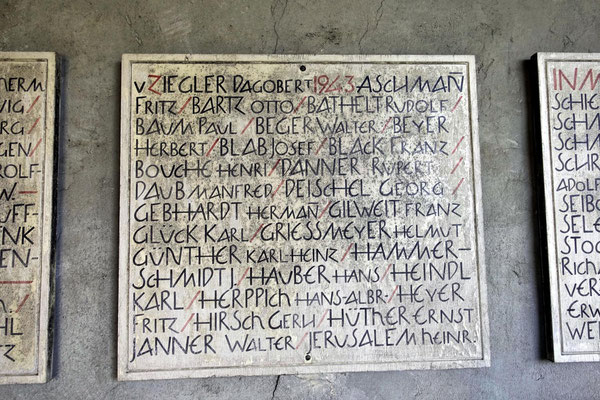 HERM
VIG/
RG/
GEN/
ROLF-
W.—
UFF-
ENK
EN-
HL
TZ
v. ZIEGLER DAGOBERT 1943 ASCHMAN̄
FRITZ/BARTZ OTTO/BATHELT RUDOLF/
BAUM PAUL/BEGER WALTER/BEYER
HERBERT/BLAB JOSEF/BLACK FRANZ/
BOUCHE HENRI/DANNER RUPERT/
DAUB MANFRED/DEISCHEL GEORG/
GEBHARDT HERMAN̄/GILWEIT FRANZ
GLÜCK KARL/GRIESSMEYER HELMUT
GÜNTHER KARL-HEINZ/HAMMER-
SCHMIDT J./HAUBER HANS/HEINDL
KARL/HERPPICH HANS-ALBR./HEYER
FRITZ/HIRSCH GERH/HÜTHER ERNST
JANNER WALTER/JERUSALEM HEINR.
IN M
SCHIE
SCHM
SCHM
SCHR
ADOLF
SEIBO
SELE
STOC
RICHA
VER
ERW
WE